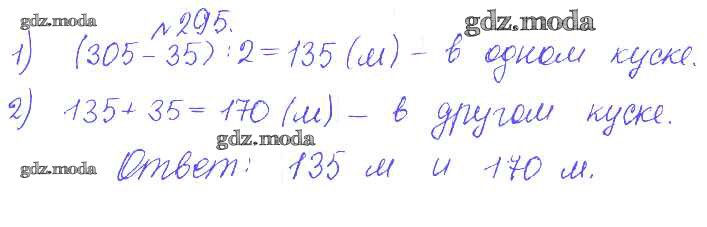 №295.
gdz.moda
gdz.moda
1) (305 - 35) : 2 = 135 (м) - в одном куске.
2) 135 + 35 = 170 (м) - в другом куске.
gdz.moda
gdz.moda
Ответ: 135 м и 170 м.